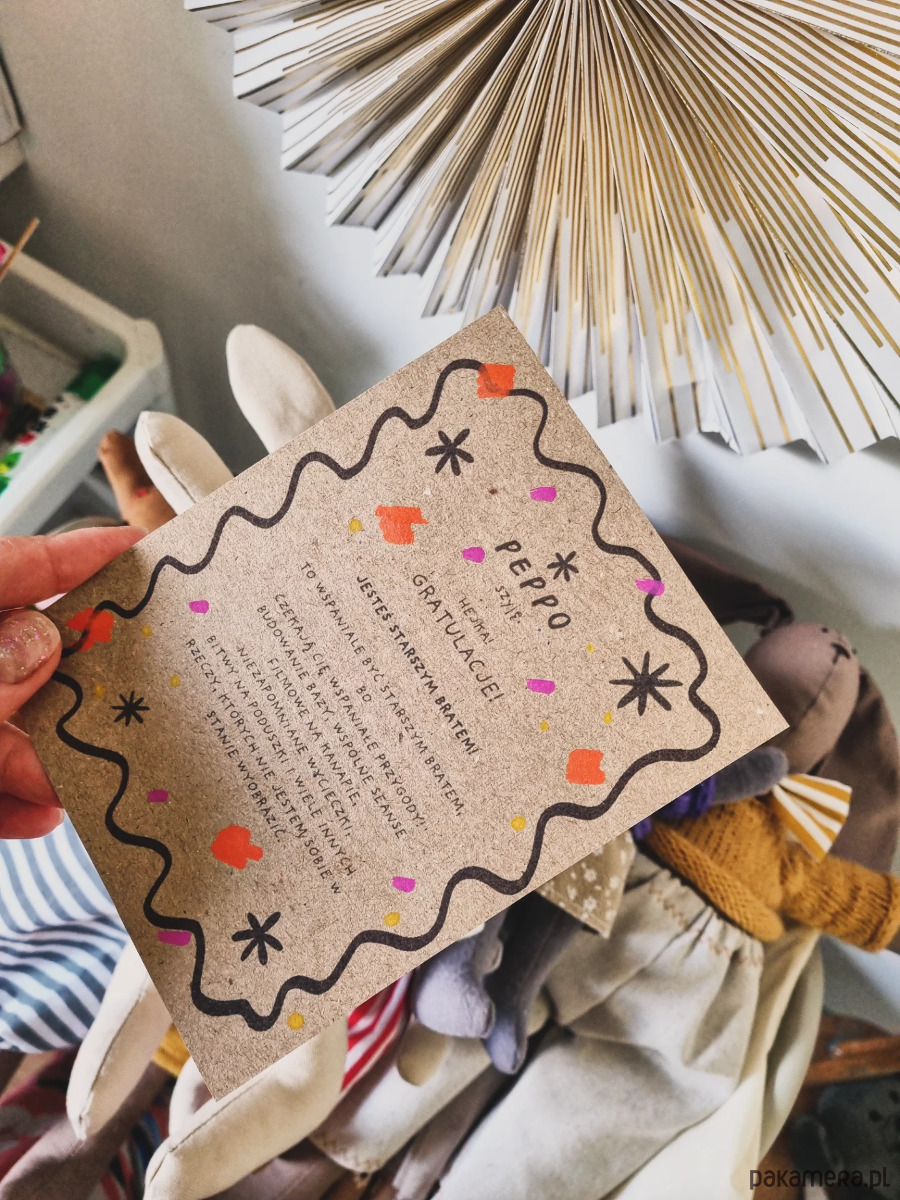 PEPPO
SZYJE
HEJKA!
GRATULACJE!
JESTEŚ STARSZYM BRATEM!
TO WSPANIALE BYĆ STARSZYM BRATEM,
BO
CZEKAJĄ CIĘ WSPANIAŁE PRZYGODY!
BUDOWANIE BAZY, WSPÓLNE SEANSE
FILMOWE NA KANAPIE,
NIEZAPOMNIANE WYCIECZKI,
BITWY NA PODUSZKI I WIELE INNYCH
RZECZY, KTÓRYCH NIE JESTEM SOBIE W
STANIE WYOBRAZIĆ
pakamera.pl